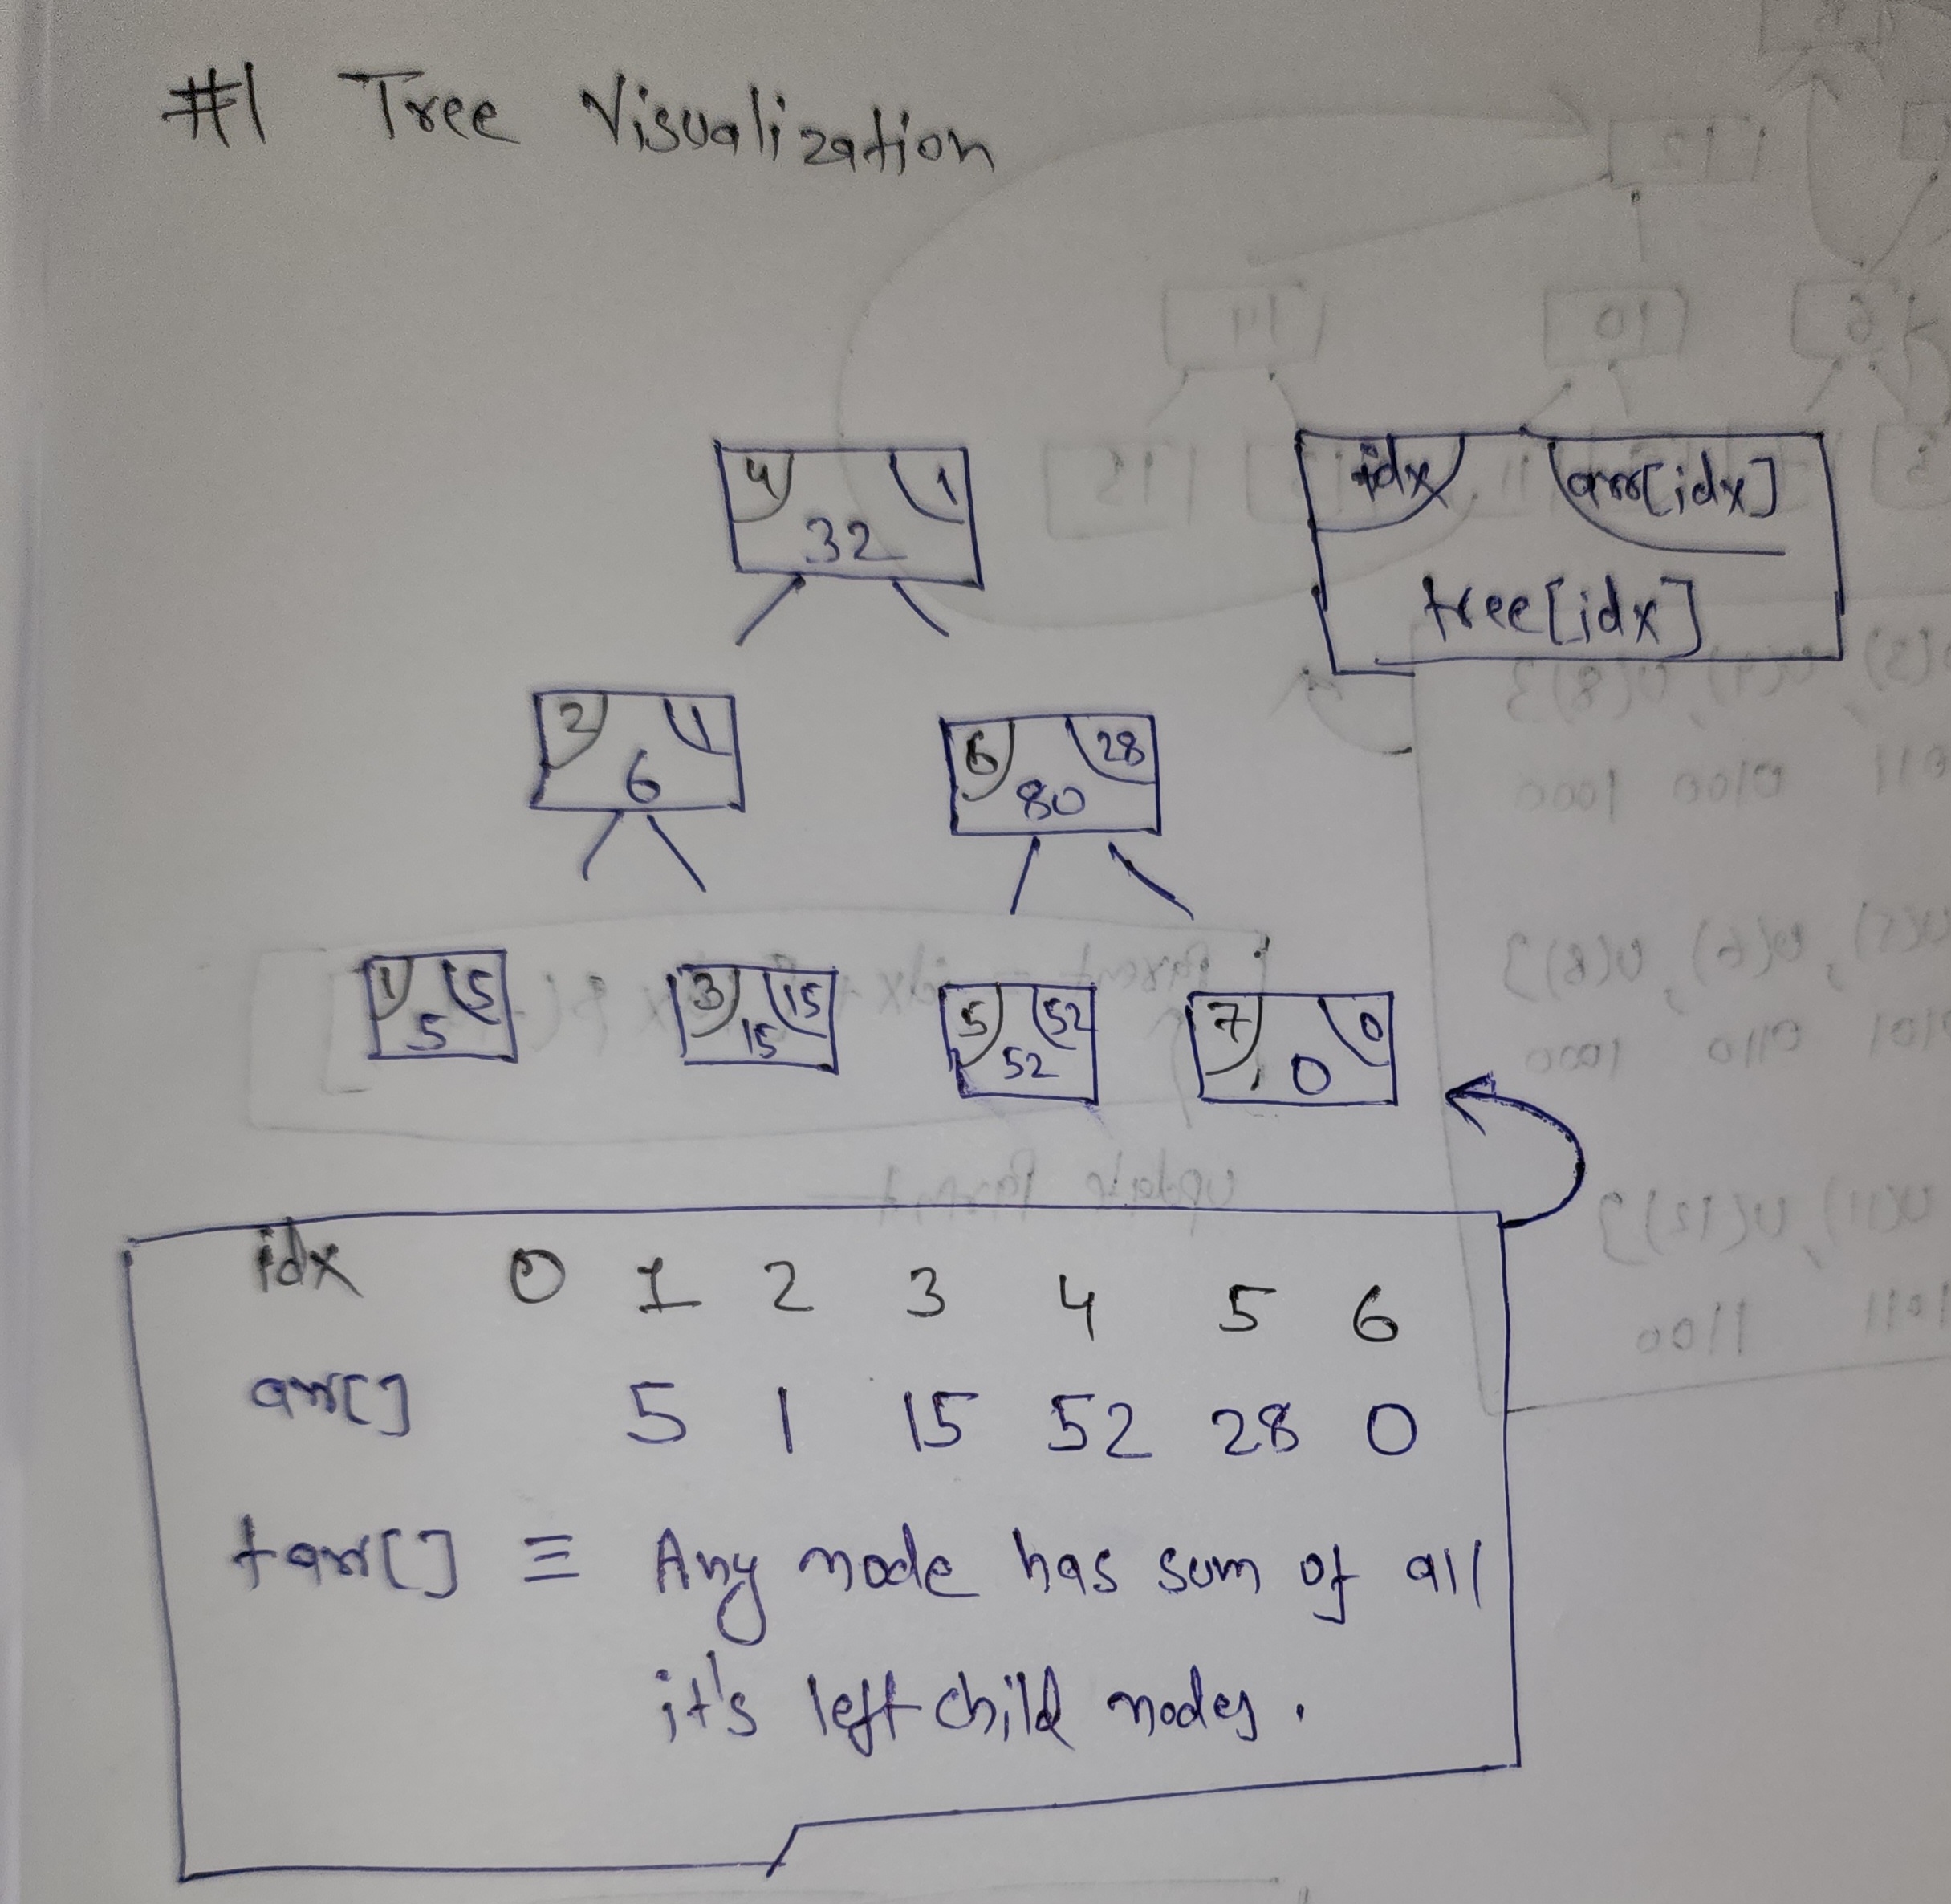 #1 Tree Visualization
4 1
32
idx arr[idx]
tree[idx]
2 1
6
6 28
80
1 5
5
3 15
15
5 52
52
7 0
0
idx 0 1 2 3 4 5 6
arr[] 5 1 15 52 28 0
tarr[] ≡ Any node has sum of all
it's left child nodes.